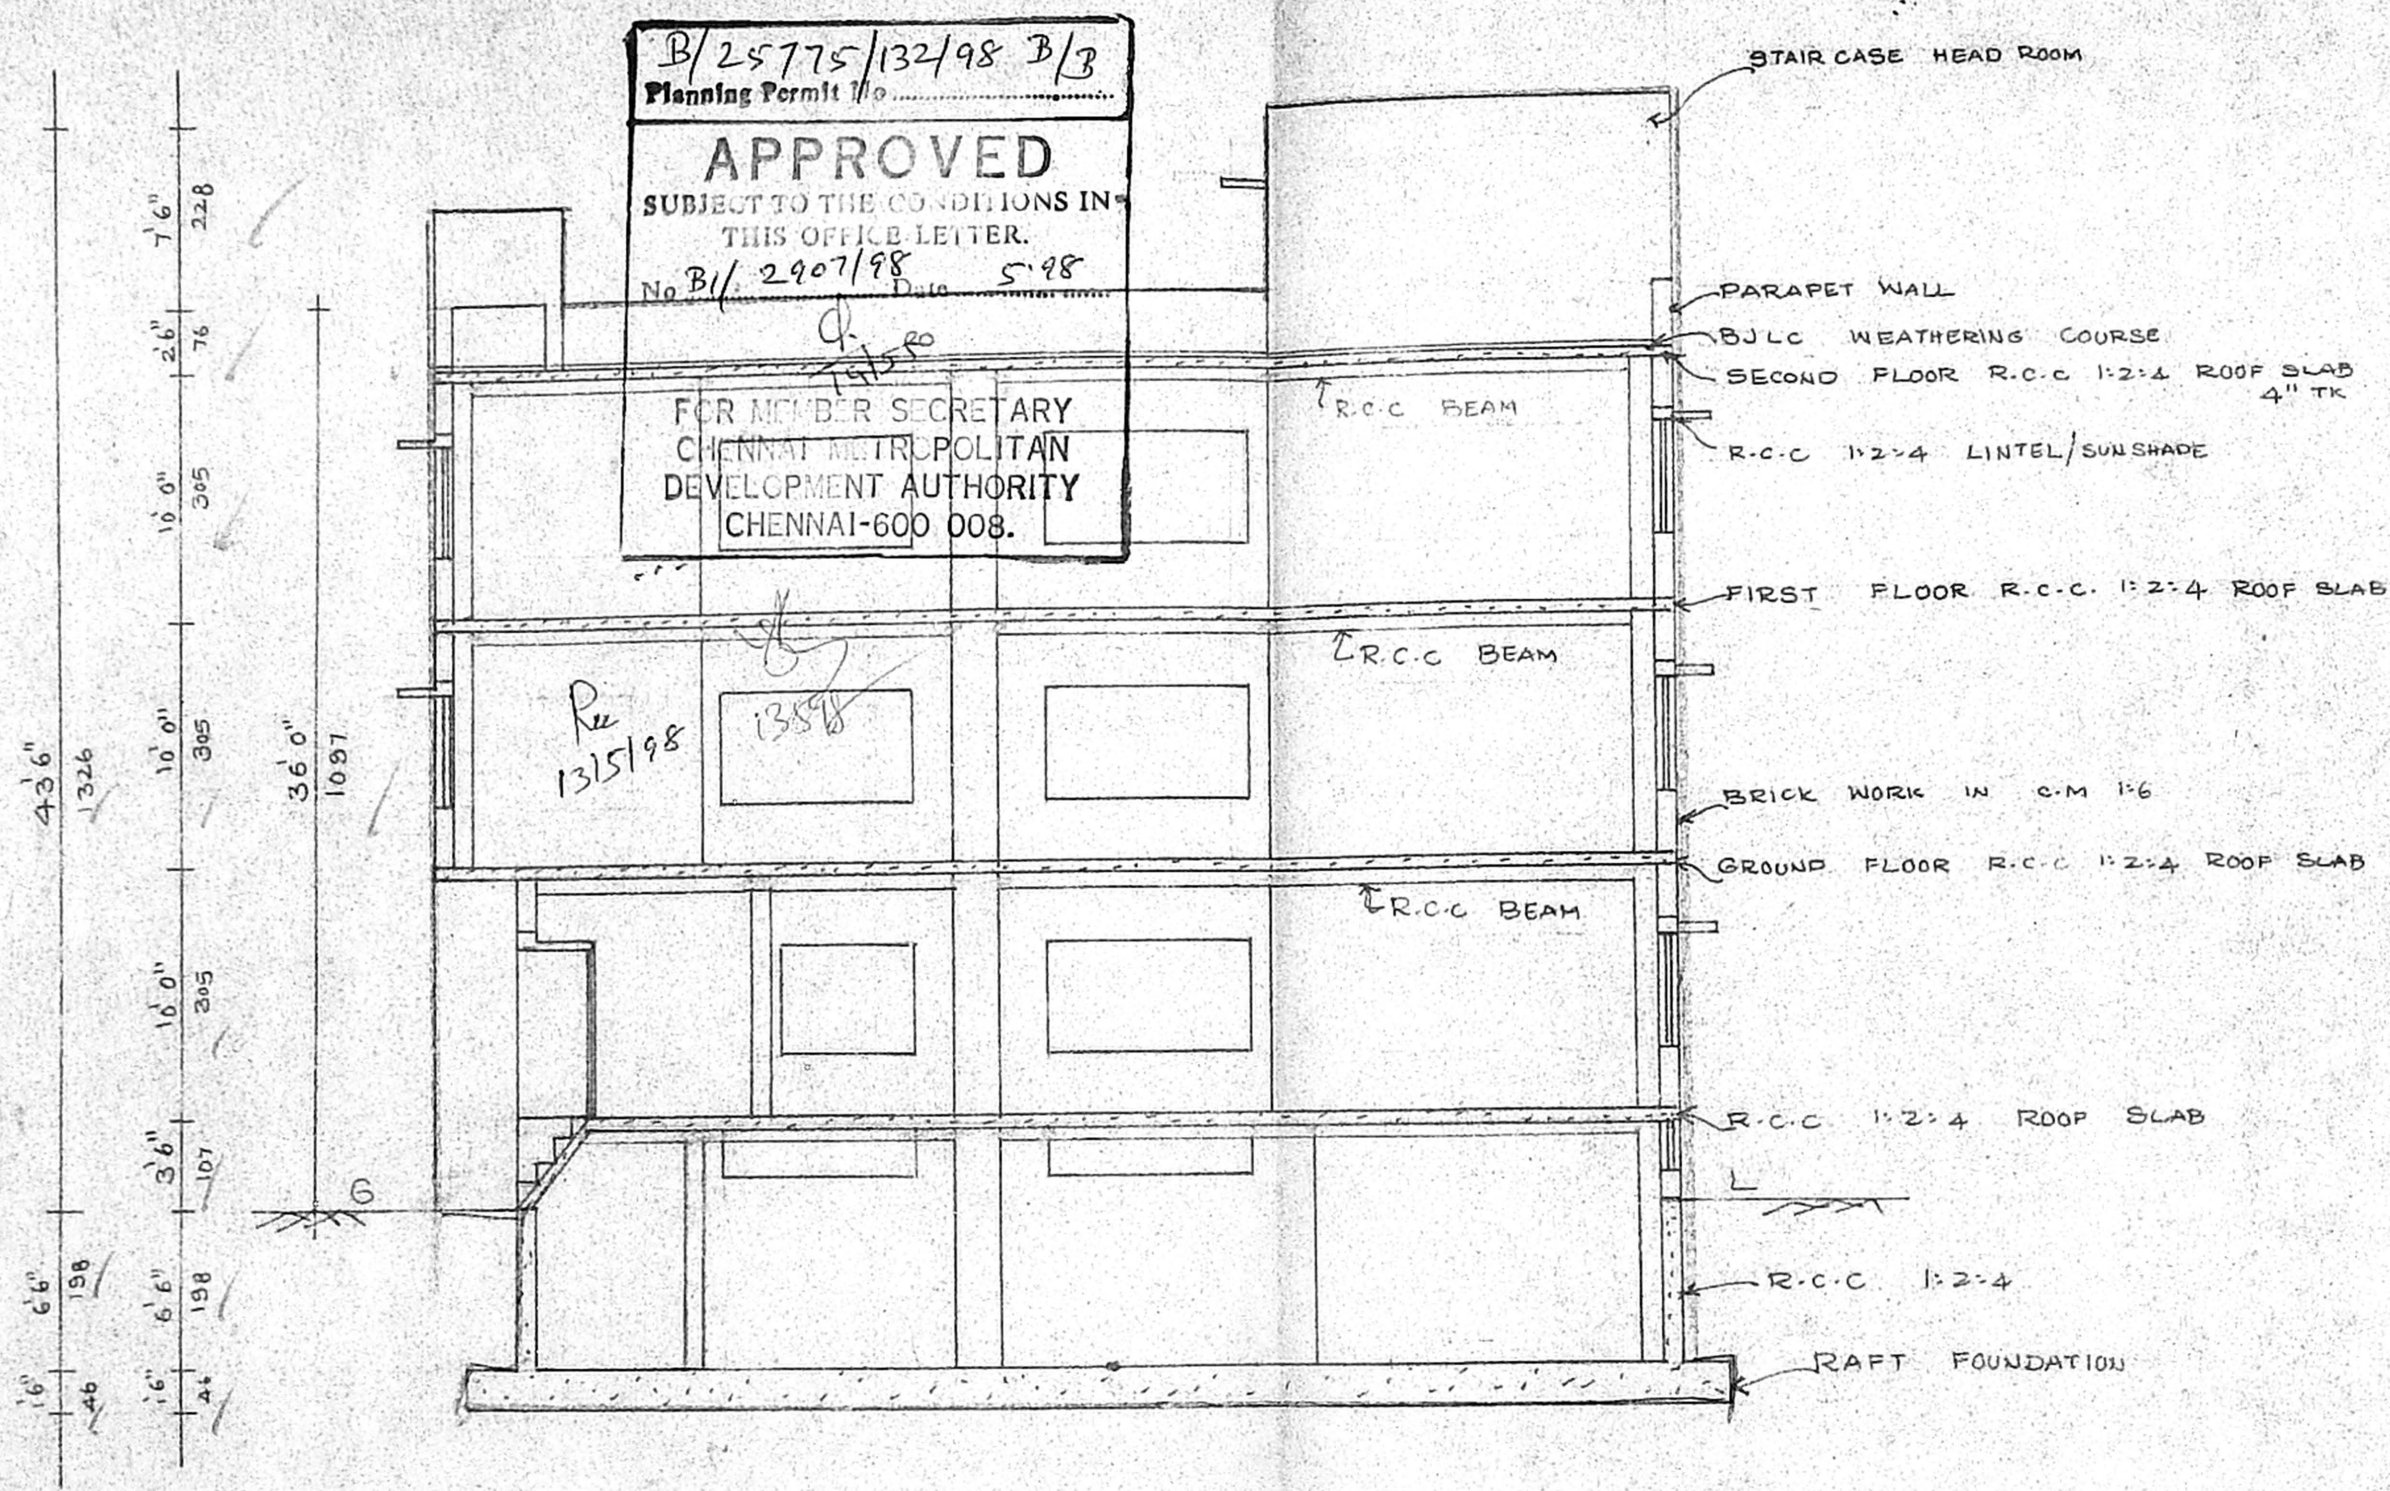 B/25775/132/98 B/B
Planning Permit No
APPROVED
SUBJECT TO THE CONDITIONS IN
THIS OFFICE LETTER.
No B1/ 2907/98 Date 5'98
FOR MEMBER SECRETARY
CHENNAI METROPOLITAN
DEVELOPMENT AUTHORITY
CHENNAI-600 008.
13/5/98
13598
STAIR CASE HEAD ROOM
PARAPET WALL
BJLC WEATHERING COURSE
SECOND FLOOR R.C.C 1:2:4 ROOF SLAB
4" TK
R.C.C BEAM
R.C.C 1:2:4 LINTEL/SUNSHADE
FIRST FLOOR R.C.C. 1:2:4 ROOF SLAB
R.C.C BEAM
BRICK WORK IN C.M 1:6
GROUND FLOOR R.C.C 1:2:4 ROOF SLAB
R.C.C BEAM
R.C.C 1:2:4 ROOF SLAB
G
L
R.C.C 1:2:4
RAFT FOUNDATION
43'6"
1326
6'6"
198
1'6"
46
7'6"
228
2'6"
76
10'0"
305
10'0"
305
10'0"
305
3'6"
107
6'6"
198
1'6"
46
36'0"
1097